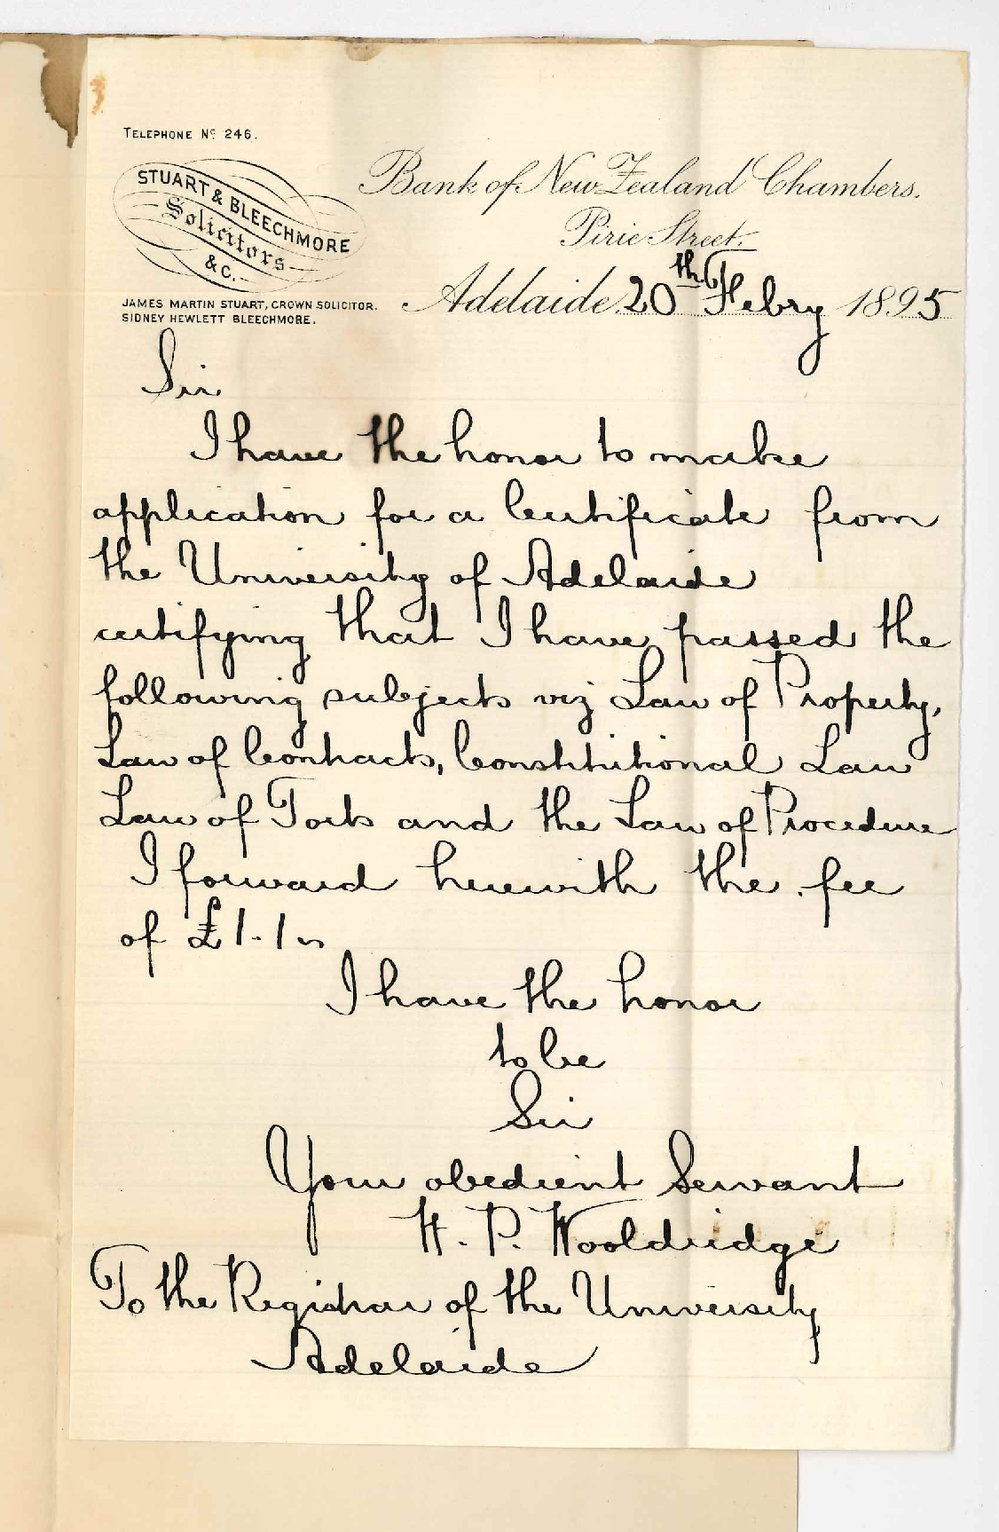 TELEPHONE No 246.
STUART & BLEECHMORE
Solicitors
&C.
JAMES MARTIN STUART, CROWN SOLICITOR.
SIDNEY HEWLETT BLEECHMORE.
Bank of New Zealand Chambers.
Pirie Street.
Adelaide 20th Febry 1895
Sir
I have the honor to make
application for a Certificate from
the University of Adelaide
certifying that I have passed the
following subjects viz Law of Property,
Law of Contracts, Constitutional Law
Law of Torts and the Law of Procedure
I forward herewith the fee
of £1.1.
I have the honor
to be
Sir
Your obedient Servant
H. P. Wooldridge
To the Registrar of the University
Adelaide